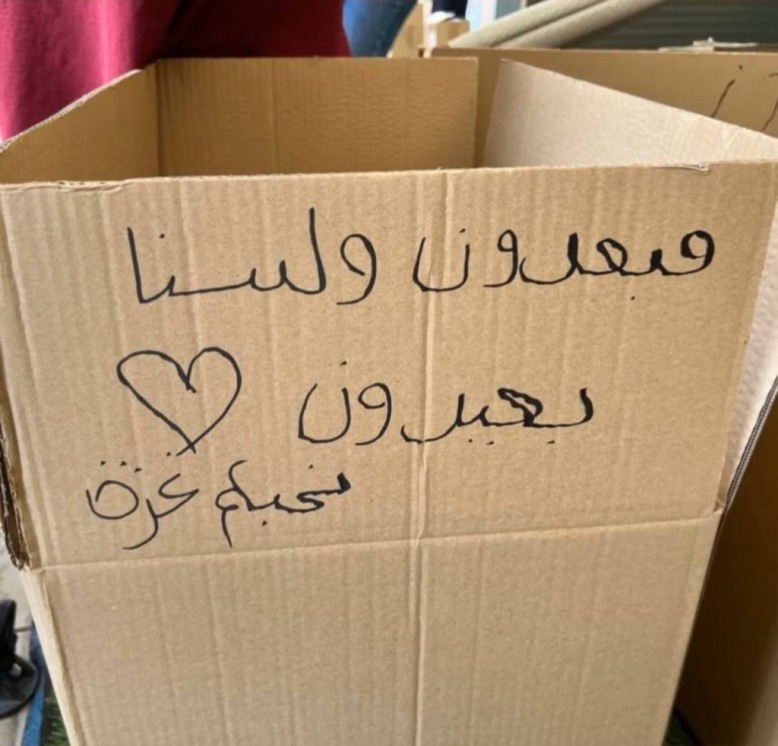 مبعدون ولسنا
بعيدون
نحبكم غزة